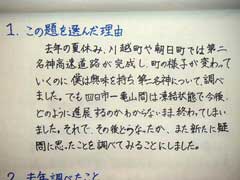 1. この題を選んだ理由
去年の夏休み、川越町や朝日町では第二
名神高速道路が完成し、町の様子が変わって
いくのに僕は興味を持ち第二名神について調べ
ました。でも四日市ー亀山間は凍結状態で今後、
どのように進展するのかわからないまま、終わってしまい
ました。それで、その後どうなったか、また新たに疑
問に思ったことを調べてみることにしました。
2. 去年調べたこと